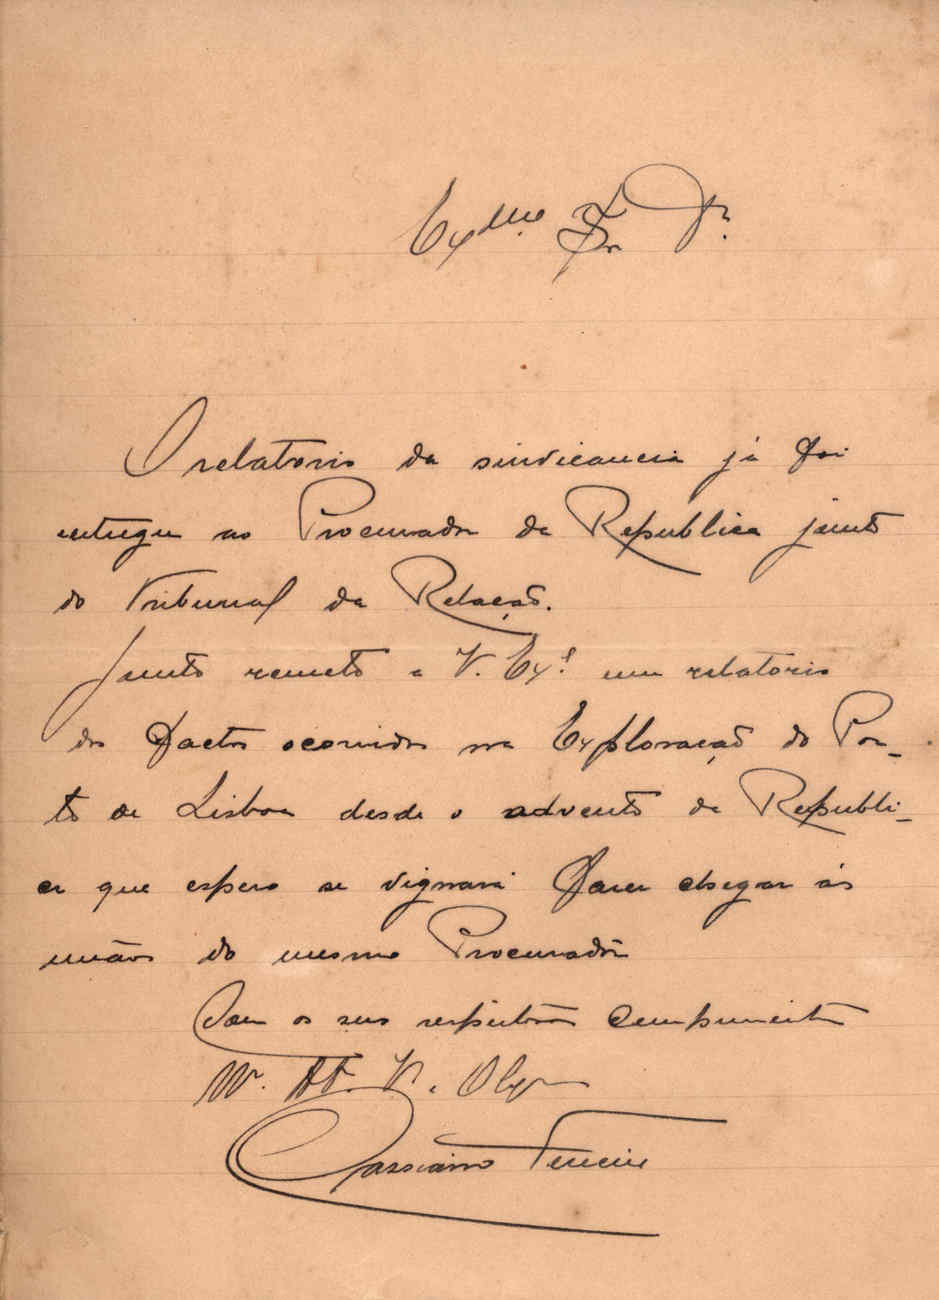 Exmo Sr. Dr.
O relatorio da sindicancia já foi
entregue ao Procurador da Republica junto
do Tribunal da Relação.
Junto remeto a V. Exª um relatorio
dos factos ocorridos na Exploração do Por-
to de Lisboa desde o advento da Republi-
ca que espero se dignará fazer chegar ás
mãos do mesmo Procurador
Com os seus respeitosos cumprimentos
Mº. Att. V. e Obgº
Cassiano